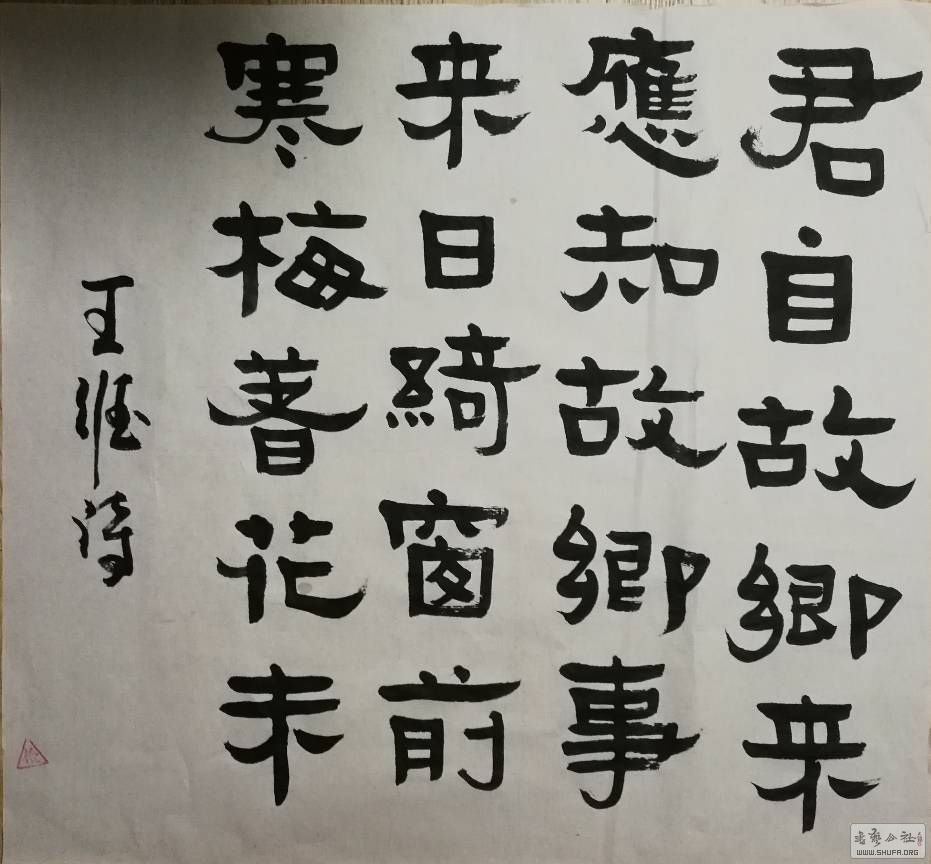 君自故鄉来
應知故鄉事
来日綺窗前
寒梅著花未
王維詩
WWW.SHUFA.ORG